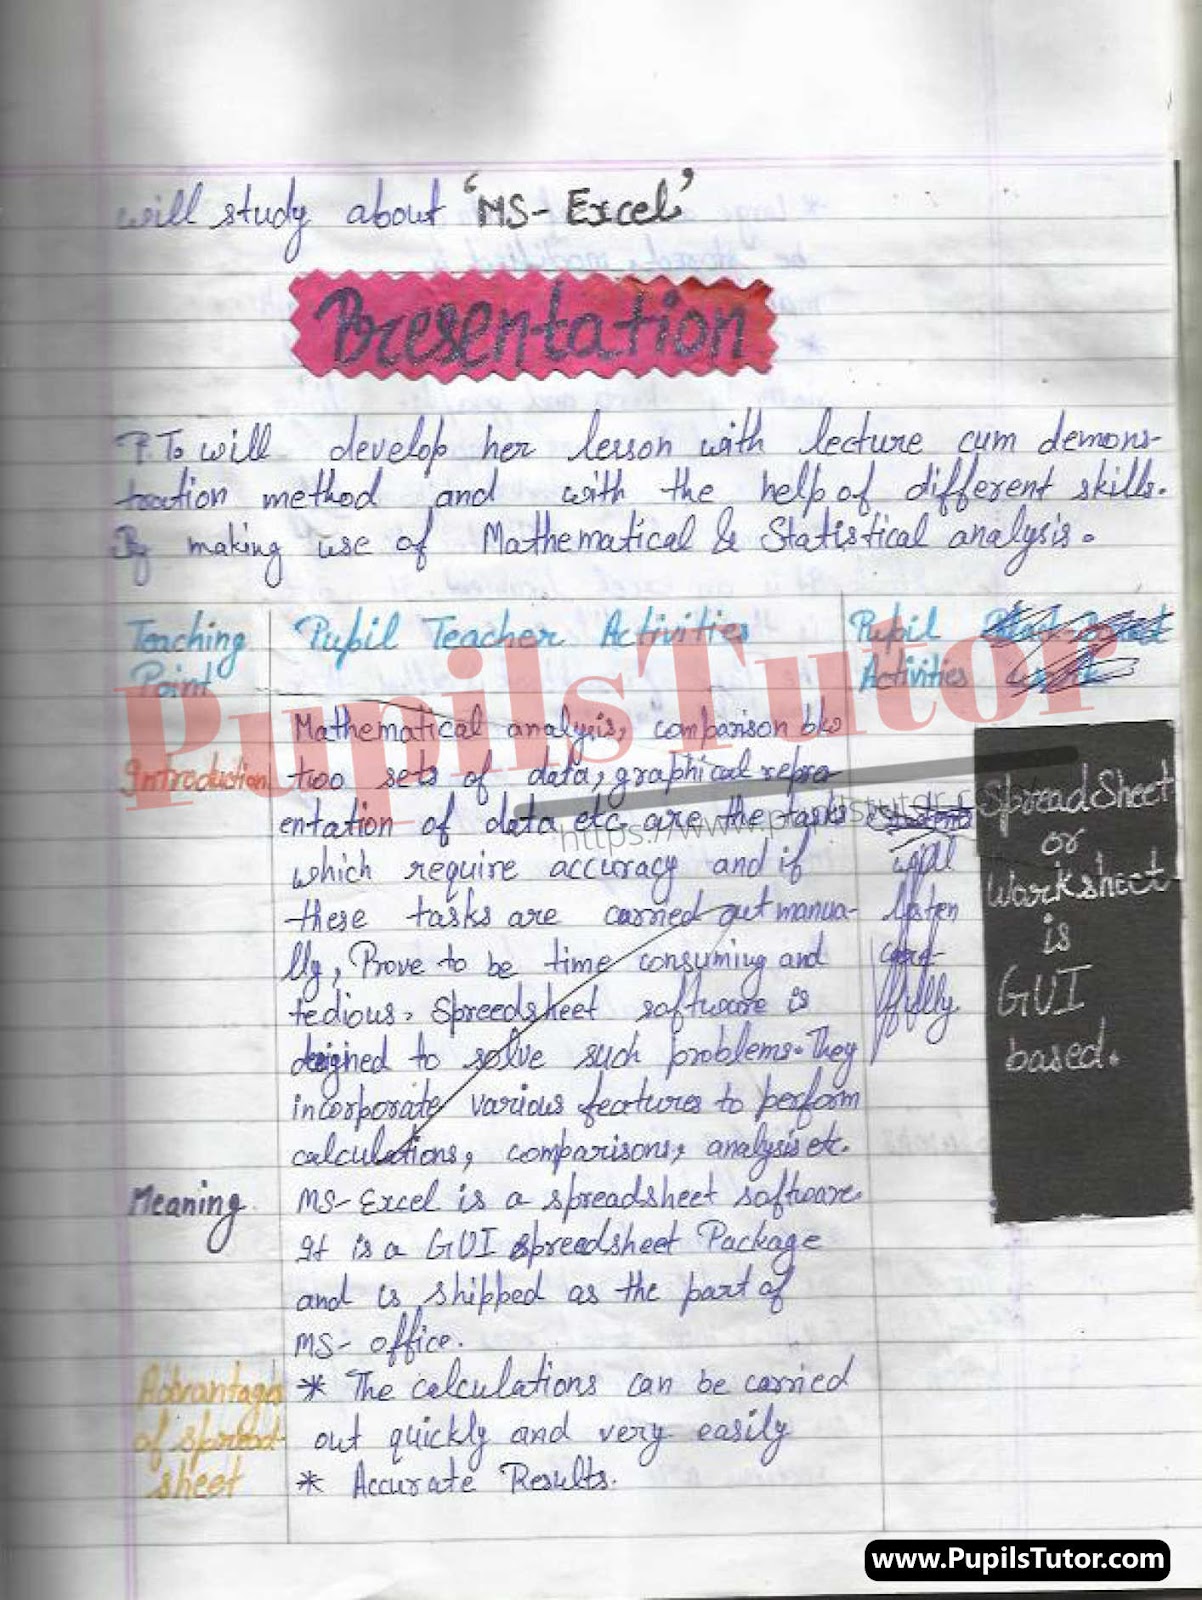 will study about 'MS-Excel'
Presentation
P.T. will develop her lesson with lecture cum demons-
tration method and with the help of different skills.
By making use of Mathematical & Statistical analysis.
Teaching
Point
Pupil Teacher Activities
Pupil
Activities
Introduction
Mathematical analysis, comparison b/w
two sets of data, graphical repre-
entation of data etc. are the tasks
which require accuracy and if
these tasks are carried out manua-
lly, Prove to be time consuming and
tedious. Spreedsheet software is
deigned to solve such problems. They
incorporate various features to perform
calculations, comparisons, analysis etc.
will
listen
care-
fully
SpreadSheet
or
Worksheet
is
GUI
based.
Meaning
MS-Excel is a spreadsheet software.
It is a GUI spreedsheet Package
and is shipped as the part of
MS-office.
Advantages
of spread-
sheet
* The calculations can be carried
out quickly and very easily
* Accurate Results.
PupilsTutor
https://www.pupilstutor.
www.PupilsTutor.com